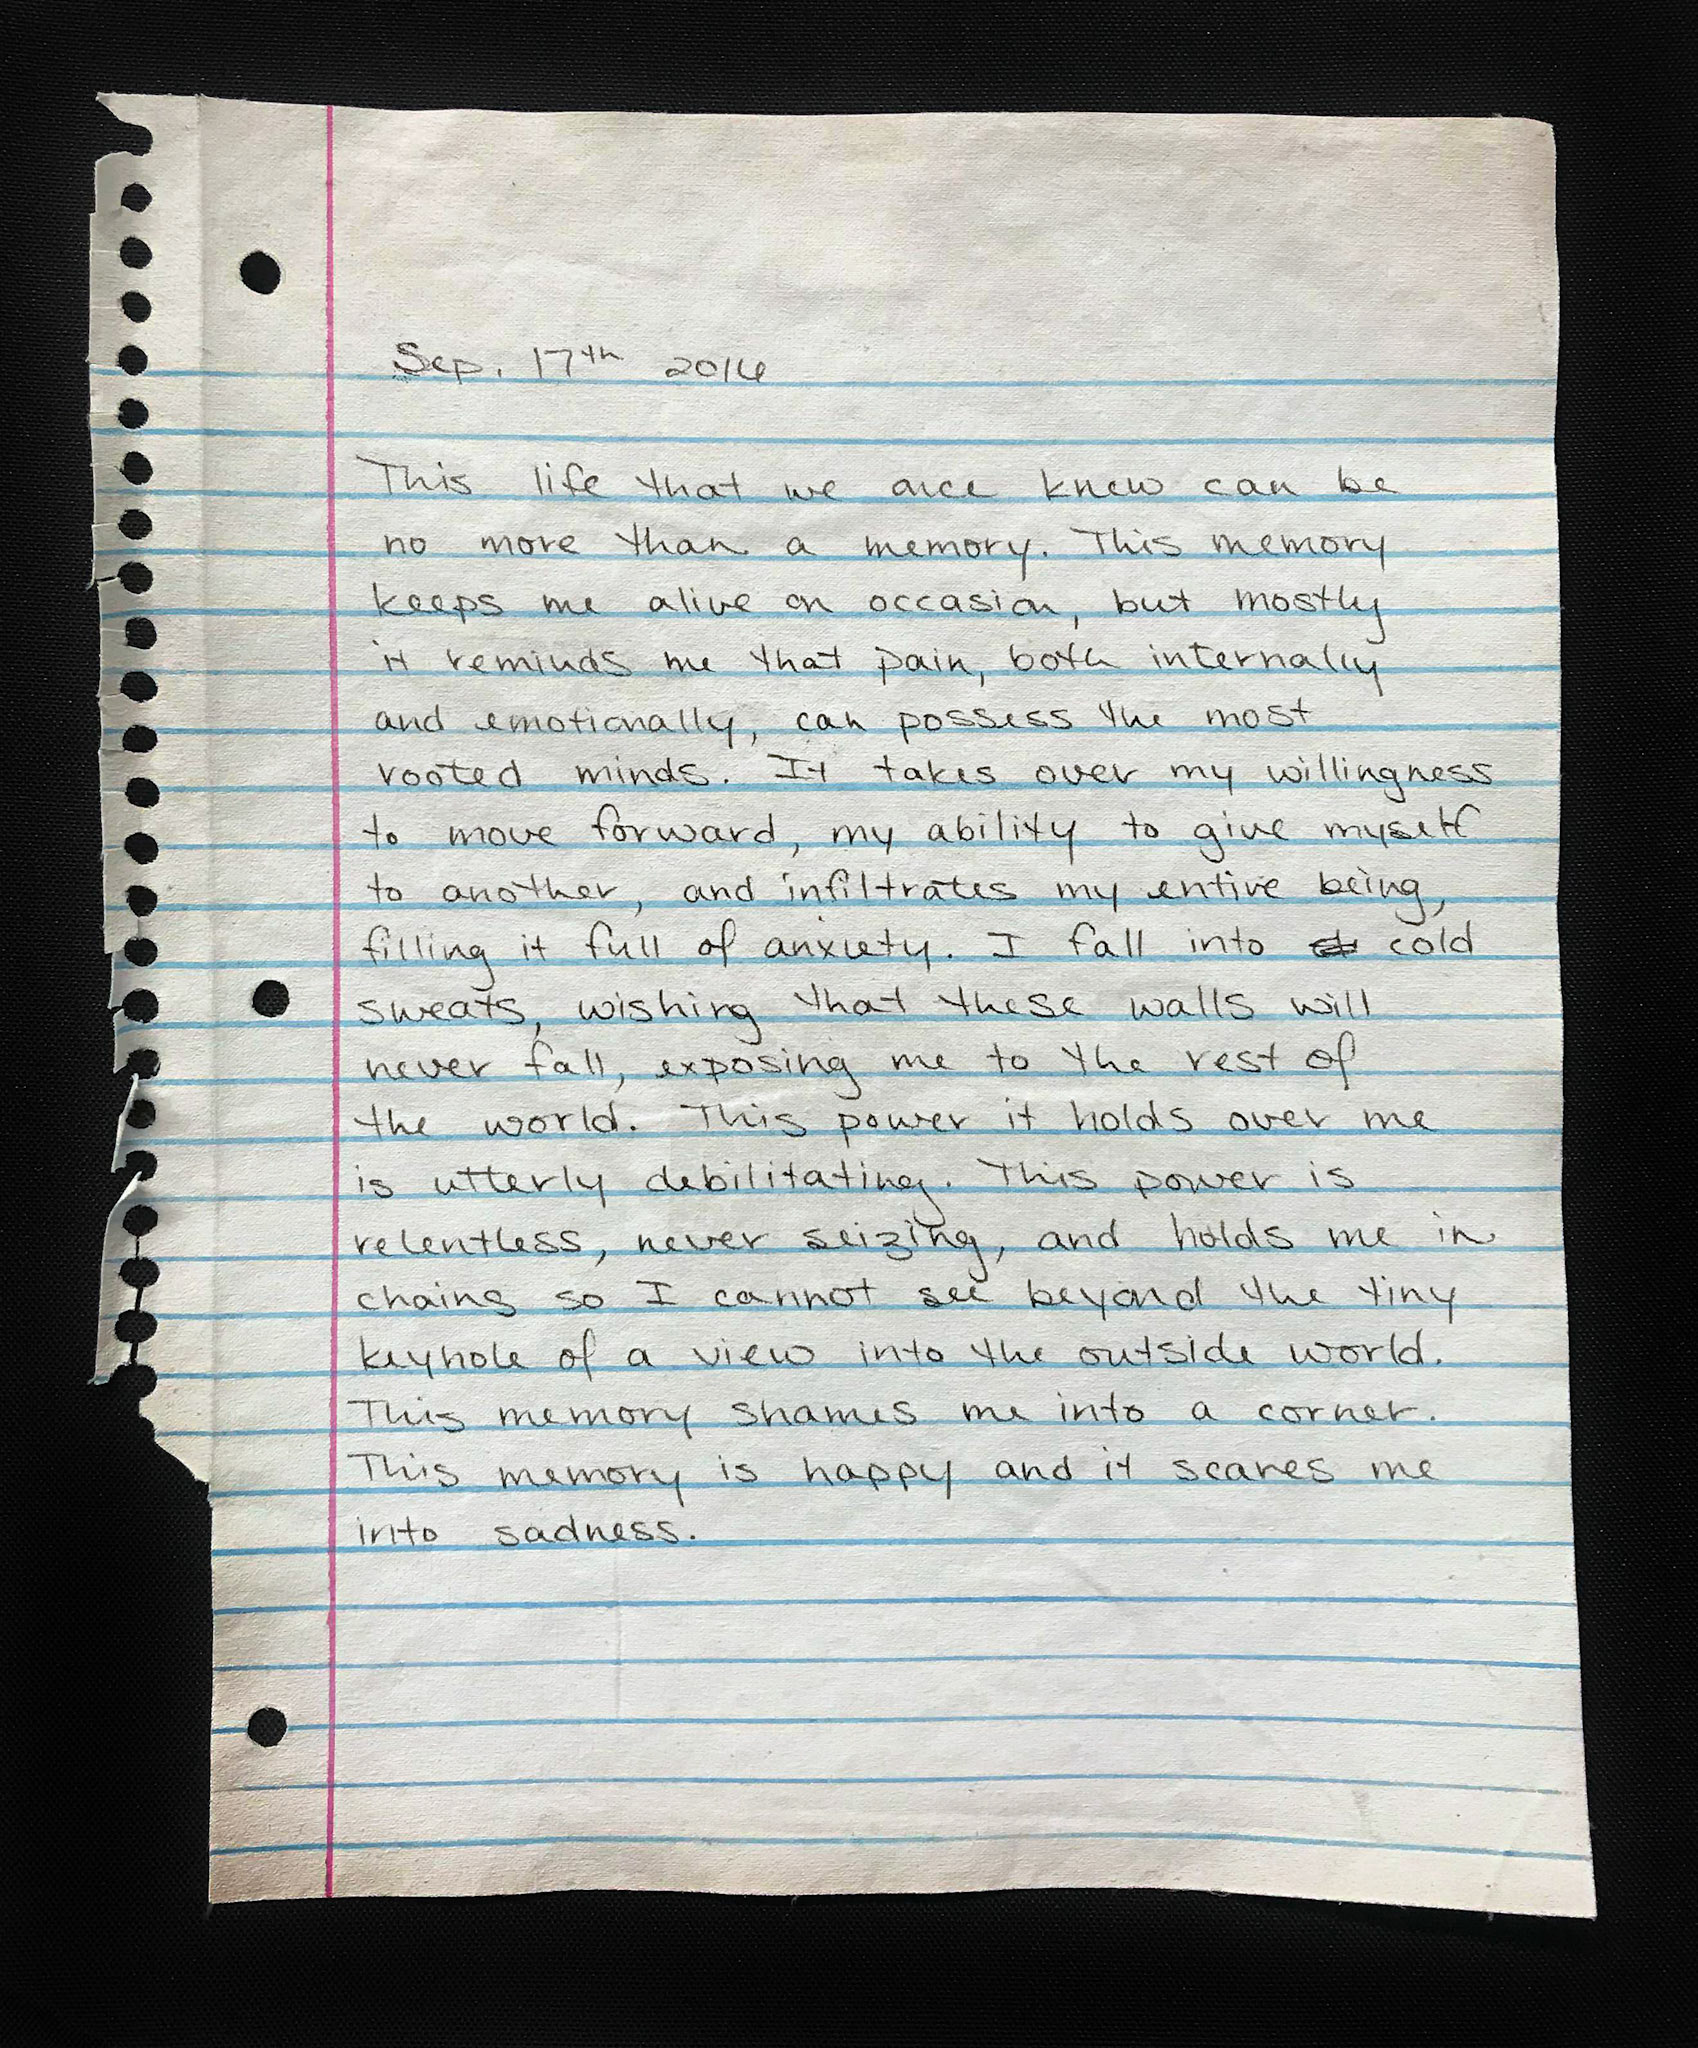 Sep. 17th 2016
This life that we once knew can be
no more than a memory. This memory
keeps me alive on occasion, but mostly
it reminds me that pain, both internally
and emotionally, can possess the most
rooted minds. It takes over my willingness
to move forward, my ability to give myself
to another, and infiltrates my entire being,
filling it full of anxiety. I fall into cold
sweats, wishing that these walls will
never fall, exposing me to the rest of
the world. This power it holds over me
is utterly debilitating. This power is
relentless, never seizing, and holds me in
chains so I cannot see beyond the tiny
keyhole of a view into the outside world.
This memory shames me into a corner.
This memory is happy and it scares me
into sadness.